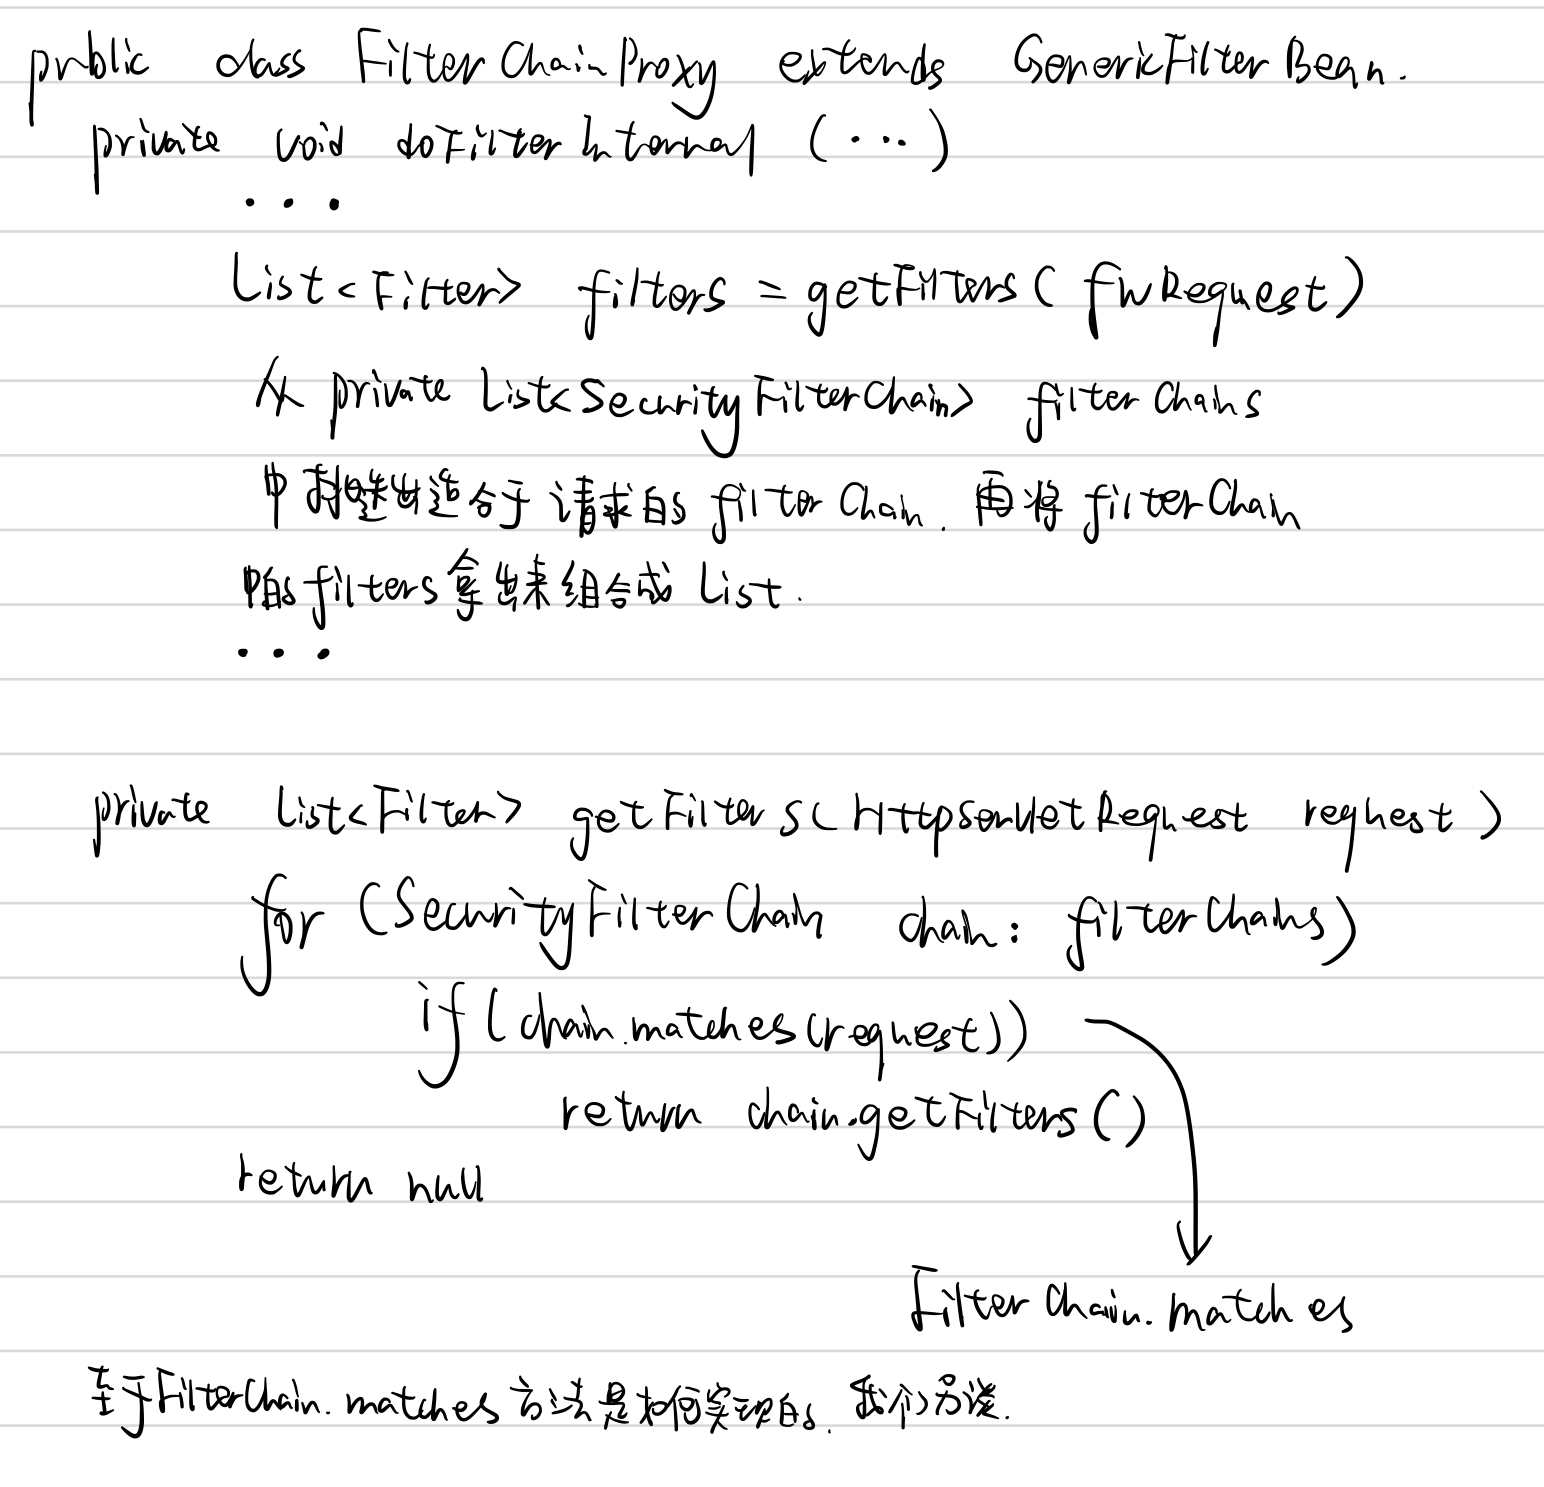 public class FilterChainProxy extends GenericFilterBean.
private void doFilterInternal (...)
...
List<Filter> filters = getFilters( fwRequest)
从 private List<SecurityFilterChain> filterChains
中挑选出适合于请求的 filterChain. 再将 filterChain
中的filters拿出来组合成 List.
...
private List<Filter> getFilters(HttpServletRequest request)
for (SecurityFilterChain chain: filterChains)
if(chain.matches(request))
return chain.getFilters()
return null
FilterChain.matches
至于FilterChain.matches方法是如何实现的. 我们另谈.